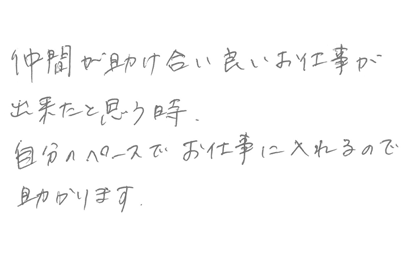 仲間が助け合い良いお仕事が
出来たと思う時.
自分のペースでお仕事に入れるので
助かります.